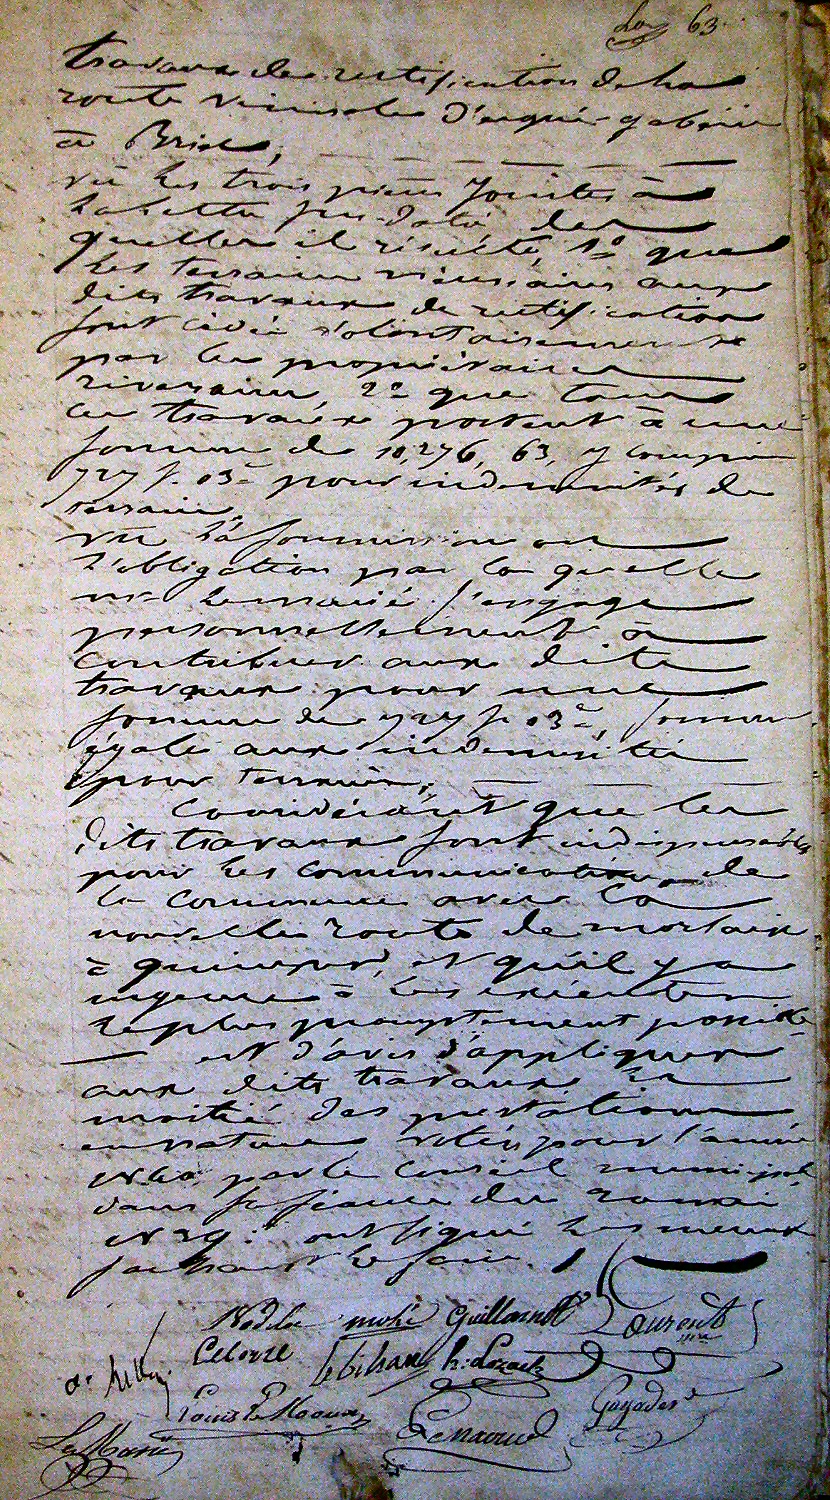 63
travaux de rectification de la
route vicinale d'ergué-gabéric
à Briec,
vu les trois pièces jointes à
la lettre sus-datée des
quelles il résulte, 1° que
les terrains nécessaires aux
dits travaux de rectification
sont cédés volontairement
par les propriétaires
riverains, 2° que tous
ces travaux portent à une
somme de 10,276, 63, y compris
727 f. 03c pour indemnités de
terrain,
vu la soumission ou
l'obligation par la quelle
mr le maire s'engage
personnellement à
contribuer aux dits
travaux pour une
somme de 727 f. 03c, somme
égale aux indemnités
pour terrain,
Considérant que les
dits travaux sont indispensables
pour les communications de
la commune avec la
nouvelle route de morlaix
à quimper, et qu'il y a
urgence à les exécuter
le plus promptement possible
est d'avis d'appliquer
aux dits travaux la
moitié des prestations
en nature votées pour l'année
1840 par le conseil municipal
dans sa séance du mai
1839. ont signé les membres
sachant le faire.
Nédélec Guillermit Laurent
maire
le bihan h: Lozach
Louis Le